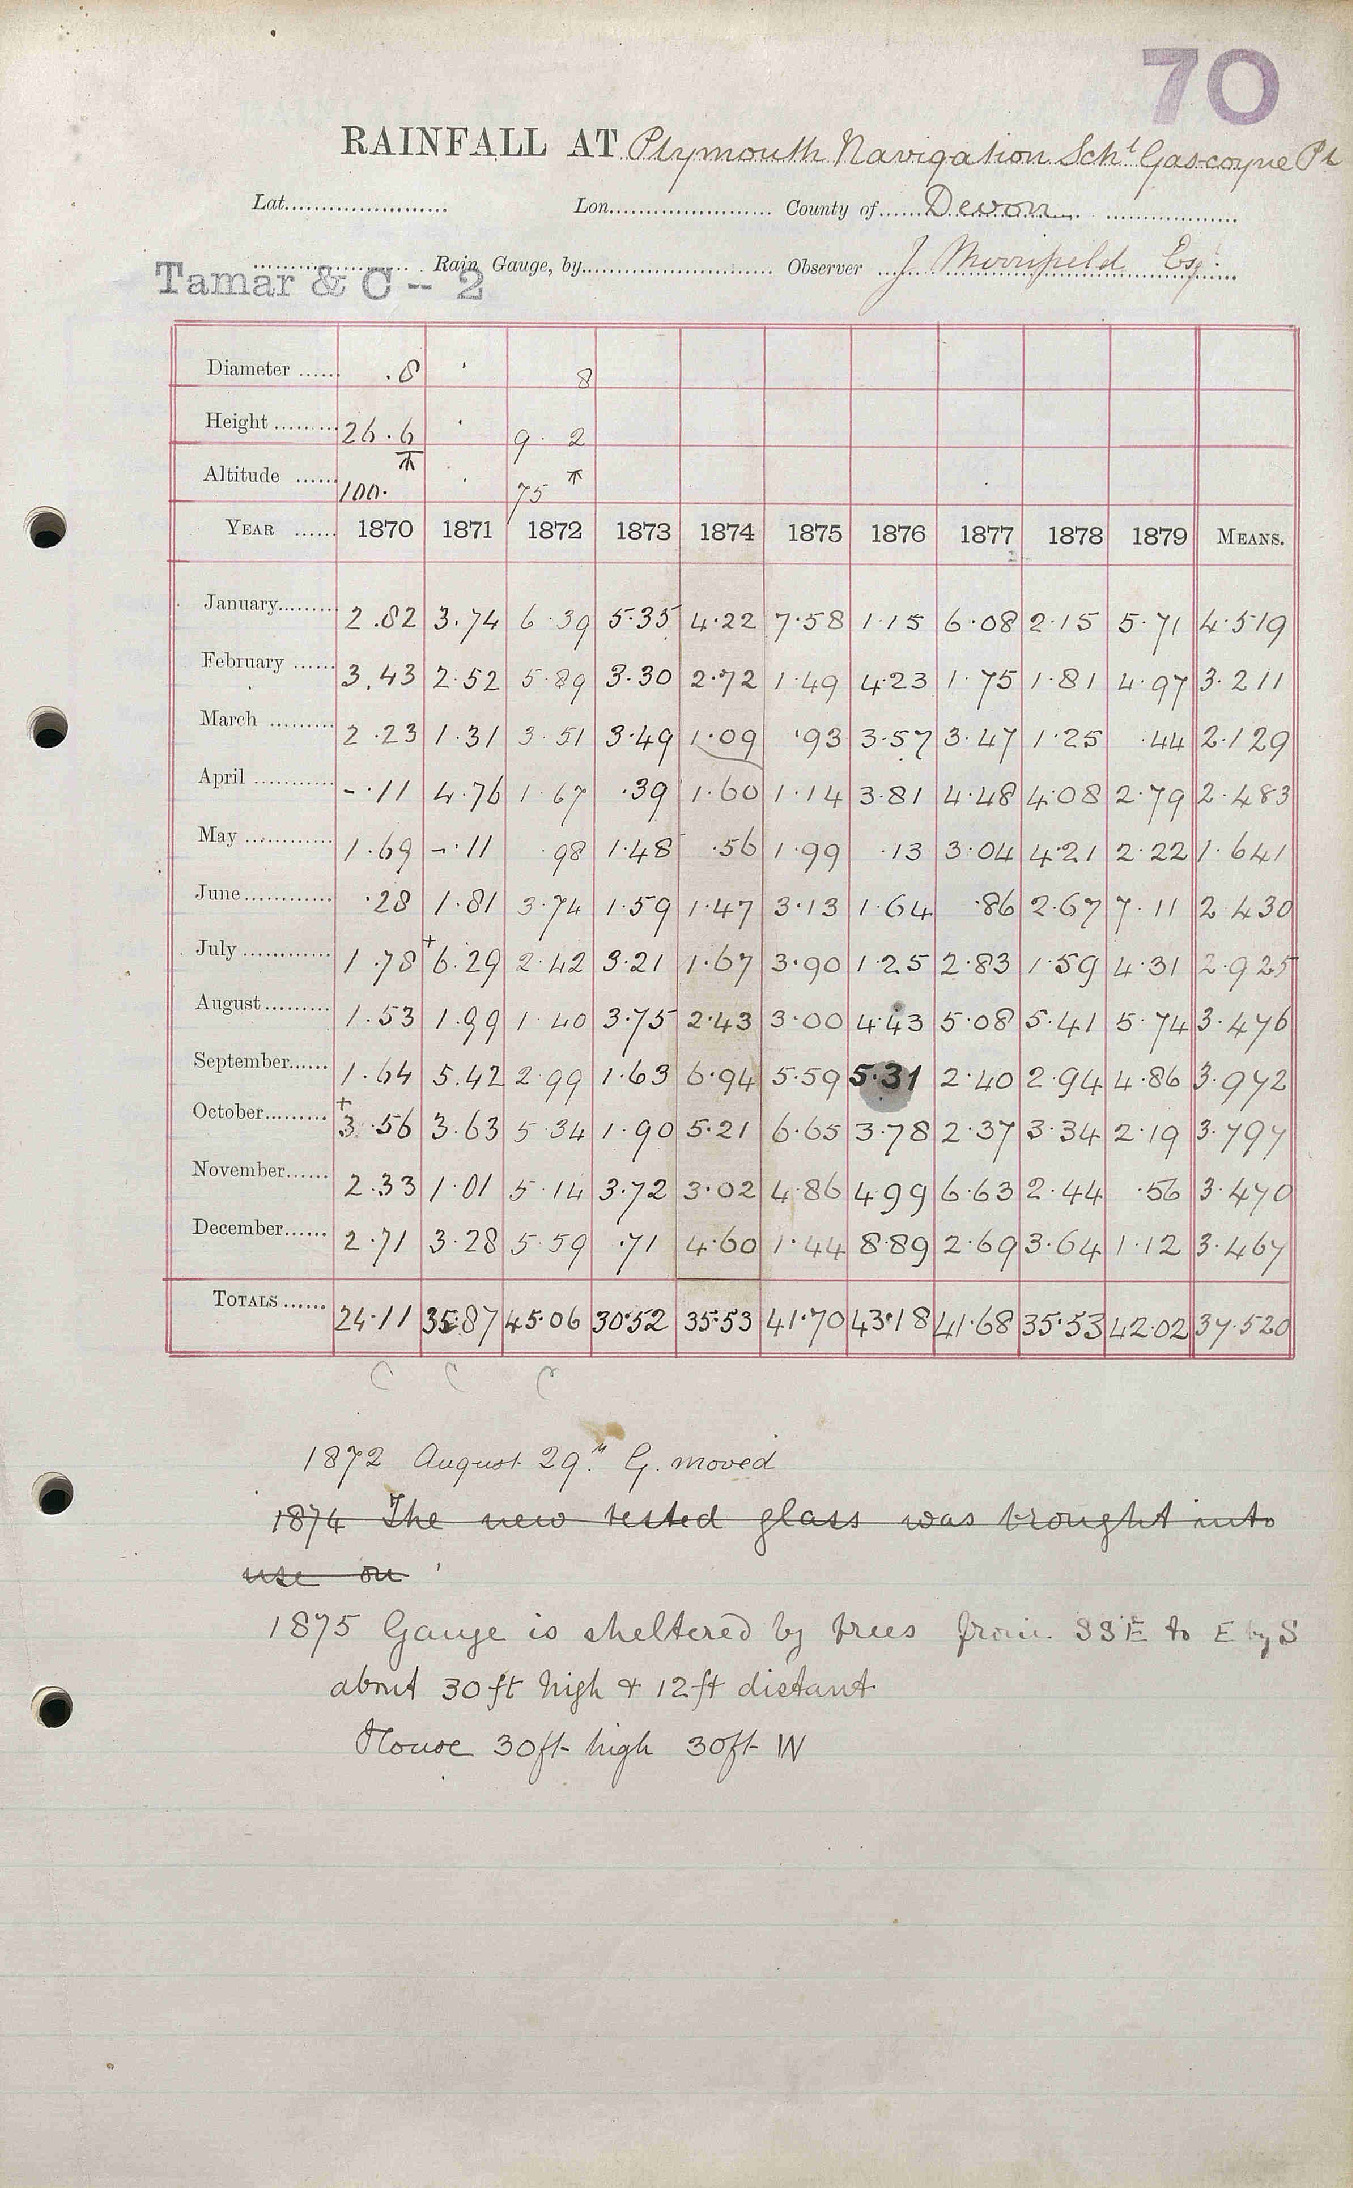 70
RAINFALL AT Plymouth Navigation Schl Gascoyne Pl
Lat. Lon. County of Devon
Rain Gauge, by Observer J Esqr
Tamar & C -- 2
Diameter .8 8
Height 26.6 9. 2
Altitude 100. 75
YEAR 1870 1871 1872 1873 1874 1875 1876 1877 1878 1879 MEANS.
January 2.82 3.74 6.39 5.35 4.22 7.58 1.15 6.08 2.15 5.71 4.519
February 3.43 2.52 5.89 3.30 2.72 1.49 4.23 1.75 1.81 4.97 3.211
March 2.23 1.31 3.51 3.49 1.09 .93 3.57 3.47 1.25 .44 2.129
April -.11 4.76 1.67 .39 1.60 1.14 3.81 4.48 4.08 2.79 2.483
May 1.69 -.11 .98 1.48 .56 1.99 .13 3.04 4.21 2.22 1.641
June .28 1.81 3.74 1.59 1.47 3.13 1.64 .86 2.67 7.11 2.430
July 1.78 +6.29 2.42 3.21 1.67 3.90 1.25 2.83 1.59 4.31 2.925
August 1.53 1.99 1.40 3.75 2.43 3.00 4.43 5.08 5.41 5.74 3.476
September 1.64 5.42 2.99 1.63 6.94 5.59 5.31 2.40 2.94 4.86 3.972
October +3.56 3.63 5.34 1.90 5.21 6.65 3.78 2.37 3.34 2.19 3.797
November 2.33 1.01 5.14 3.72 3.02 4.86 4.99 6.63 2.44 .56 3.470
December 2.71 3.28 5.59 .71 4.60 1.44 8.89 2.69 3.64 1.12 3.467
TOTALS 24.11 35.87 45.06 30.52 35.53 41.70 43.18 41.68 35.53 42.02 37.520
C C C
1872 August 29th G. moved
1874 The new tested glass was brought into
use on
1875 Gauge is sheltered by trees from SSE to E by S
about 30ft high & 12ft distant
House 30ft high 30ft W